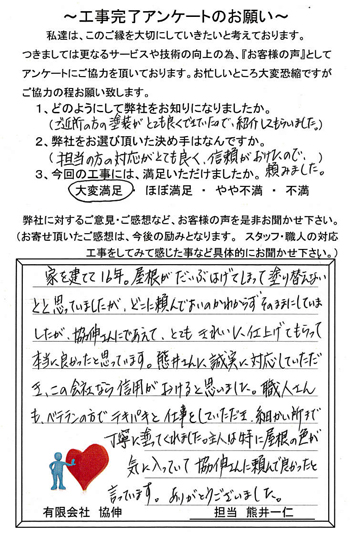 ～工事完了アンケートのお願い～
私達は、このご縁を大切にしていきたいと考えております。
つきましては更なるサービスや技術の向上の為、『お客様の声』として
アンケートにご協力を頂いております。お忙しいところ大変恐縮ですが
ご協力の程お願い致します。
１、どのようにして弊社をお知りになりましたか。
（ご近所の方の塗装がとても良くできていたので、紹介してもらいました。）
２、弊社をお選び頂いた決め手はなんですか。
（担当の方の対応がとても良く、信頼がおけたので、頼みました。）
３、今回の工事には、満足いただけましたか。
大変満足 ・ ほぼ満足 ・ やや不満 ・ 不満
弊社に対するご意見・ご感想など、お客様の声を是非お聞かせ下さい。
（お寄せ頂いたご感想は、今後の励みとなります。 スタッフ・職人の対応
工事をしてみて感じた事など具体的にお聞かせ下さい。）
家を建てて16年。屋根がだいぶはげてしまって塗り替えない
とと思っていましたが、どこに頼んでよいのかわからずそのままにしていま
したが、協伸さんにであえて、とてもきれいに仕上げてもらって
本当に良かったと思っています。熊井さんに誠実に対応していただ
き、この会社なら信用がおけると思いました。職人さん
も、ベテランの方でテキパキと仕事をしていただき、細かい所まで
丁寧に塗ってくれました。主人は特に屋根の色が
気に入っていて協伸さんに頼んで良かったと
言っています。ありがとうございました。
有限会社 協伸
担当 熊井一仁